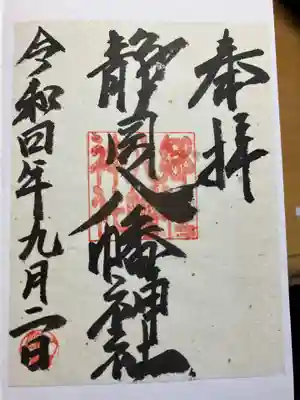 奉拝
静岡八幡神社
令和四年九月二日